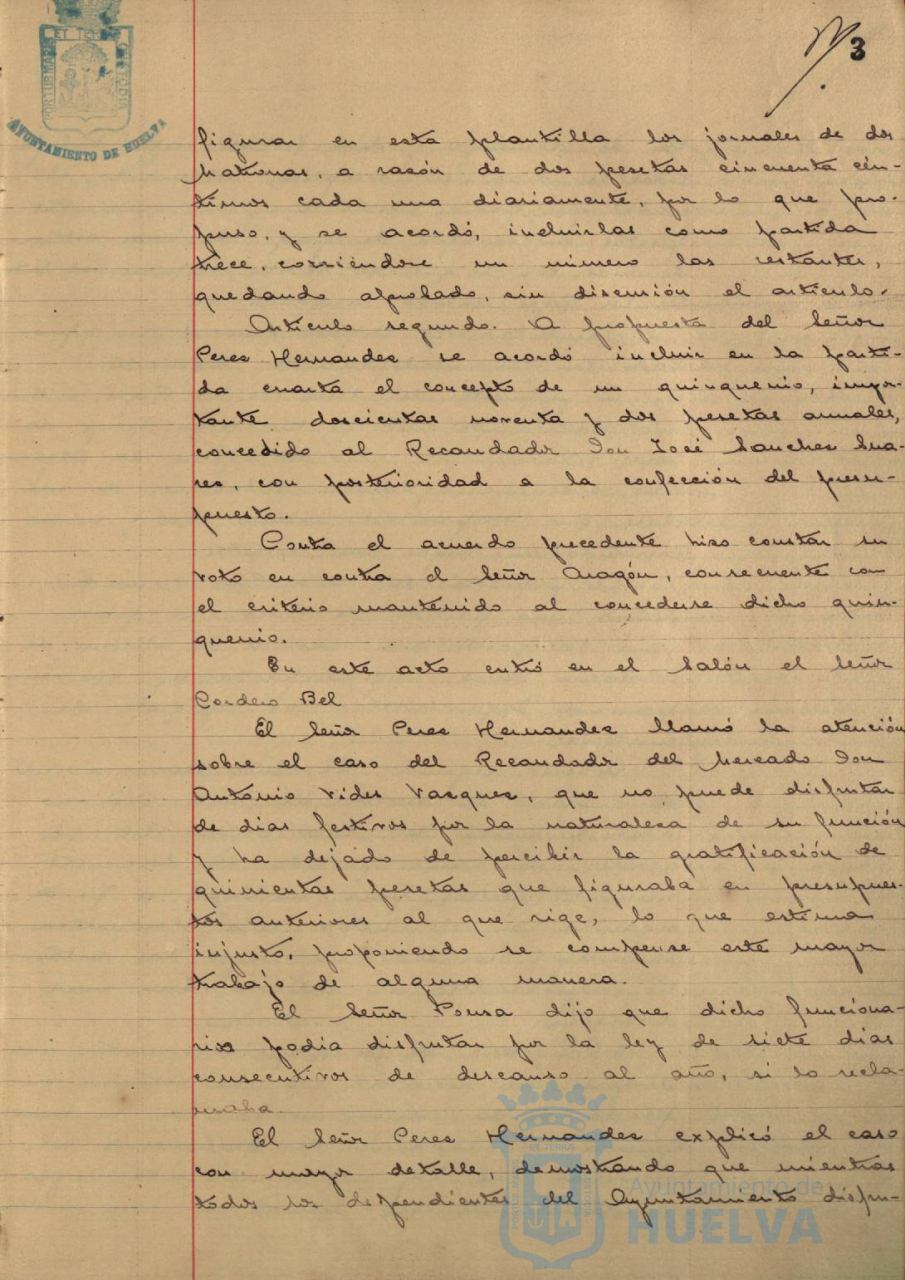 3
PORTUS MARIS ET TERRÆ CUSTODIA
AYUNTAMIENTO DE HUELVA
figurar en esta plantilla los jornales de dos
Matronas, a razón de dos pesetas cincuenta cén-
timos cada una diariamente, por lo que pro-
puso, y se acordó, incluirlas como partida
trece, corriéndose un número las restantes,
quedando aprobado, sin discusión el artículo.
Artículo segundo. A propuesta del Señor
Peres Hernandez se acordó incluir en la parti-
da cuarta el concepto de un quinquenio, impor-
tante doscientas noventa y dos pesetas anuales,
concedido al Recaudador Don José Sanches Sua-
res, con posterioridad a la confección del presu-
puesto.
Contra el acuerdo precedente hizo constar su
voto en contra el Señor Aragón, consecuente con
el criterio mantenido al concederse dicho quin-
quenio.
En este acto entró en el Salón el Señor
Cordero Bel
El Señor Peres Hernandez llamó la atención
sobre el caso del Recaudador del Mercado Don
Antonio Vides Vasques, que no puede disfrutar
de dias festivos por la naturaleza de su función
y ha dejado de percibir la gratificación de
quinientas pesetas que figuraba en presupues-
tos anteriores al que rige, lo que estima
injusto, proponiendo se compense este mayor
trabajo de alguna manera.
El Señor Ponsa dijo que dicho funciona-
rio podia disfrutar por la ley de siete dias
consecutivos de descanso al año, si lo recla-
maba.
El Señor Peres Hernandez explicó el caso
con mayor detalle, demostrando que mientras
todos los dependientes del Ayuntamiento disfru-
Ayuntamiento de
HUELVA